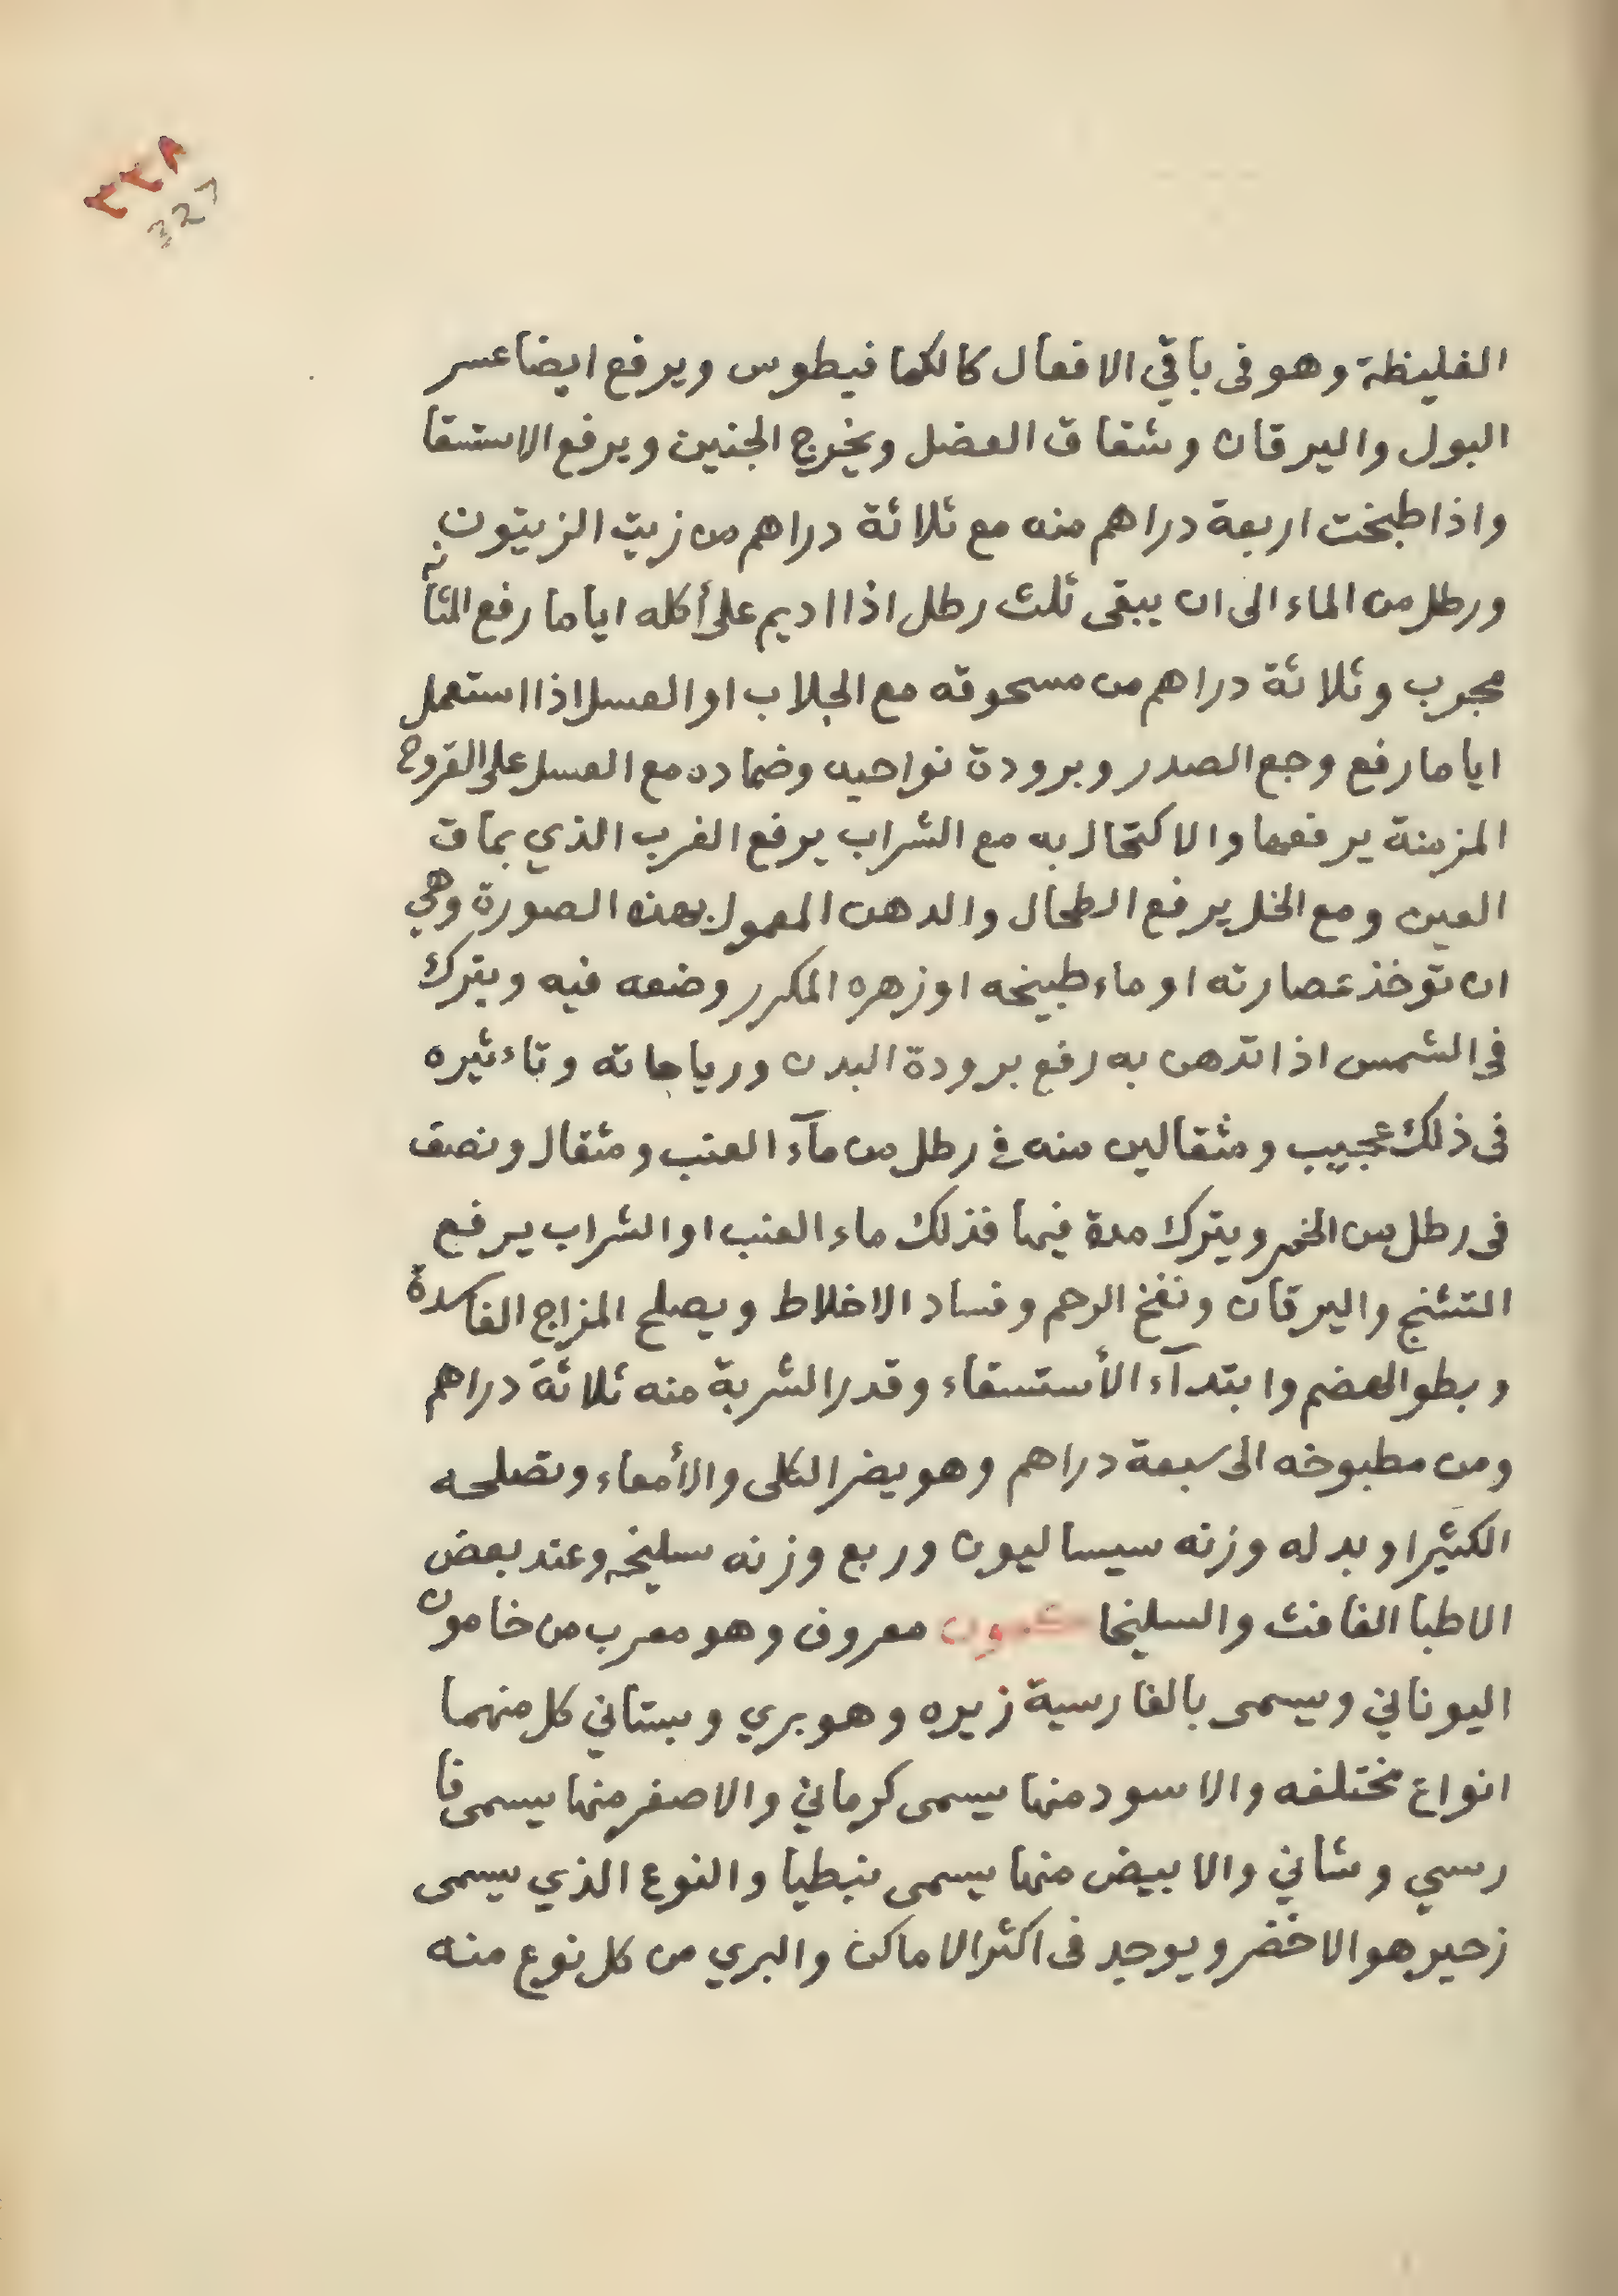 ٣٢٨
327
الغليظة وهو فى باقي الافعال كالكمافيطوس ويرفع ايضا عسر
البول واليرقان وشقاق العضل ويخرج الجنين ويرفع الاستسقا
واذا طبخت اربعة دراهم منه مع ثلاثة دراهم من زيت الزيتون
ورطل من الماء الى ان يبقى ثلث رطل اذا اديم على أكله اياما رفع المثانه
مجرب وثلاثة دراهم من مسحوقه مع الجلاب او العسل اذا استعمل
اياما رفع وجع الصدر وبرودة نواحيه وضماده مع العسل على القروح
المزمنة يرفعها والاكتحال به مع الشراب يرفع الغرب الذي بماق
العين ومع الخل يرفع الطحال والدهن المعمول بهذه الصورة وهي
ان تؤخذ عصارته او ماء طبيخه او زهره المكرر وضعه فيه ويترك
في الشمس اذا تدهن به رفع برودة البدن ورياحاته وتاءثيره
فى ذلك عجيب ومثقالين منه في رطل من مآء العنب ومثقال ونصف
فى رطل من الخمر ويترك مدة فيها فذلك ماء العنب او الشراب يرفع
التشنج واليرقان ونفخ الرحم وفساد الاخلاط ويصلح المزاج الفاسدة
وبطو الهضم وابتدآء الأستسقاء وقدر الشربة منه ثلاثة دراهم
ومن مطبوخه الى سبعة دراهم وهو يضر الكلى والأمعاء وتصلحه
الكثيرا وبدله وزنه سيساليون وربع وزنه سليخه وعند بعض
الاطبا الغافث والسليخا كمون معروف وهو معرب من خامون
اليوناني ويسمى بالفارسية زيره وهو بري وبستاني كل منهما
انواع مختلفه والاسود منها يسمى كرماني والاصفر منها يسمى فا
رسي وشاني والابيض منها يسمى نبطيا والنوع الذي يسمى
زحير هو الاخضر ويوجد فى اكثر الاماكن والبري من كل نوع منه